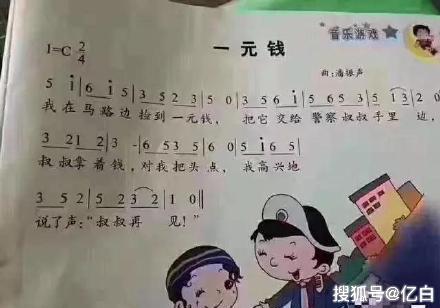 音乐游戏
一元钱
1=C 2/4
曲:潘振声
5 i | 6 i 5 | 3 5 2 3 | 5 0 | 3 5 6 i 5 | 6 5 6 5 3 | 5 1 3 | 2 0 |
我在马路边捡到一元钱, 把它交给警察叔叔手里边,
3 2 1 2 | 3 - | 6 5 3 5 | 6 0 | 5 i 6 5 |
叔叔拿着钱,对我把头点, 我高兴地
3 5 2 | 5 2 3 2 | 1 0 ||
说了声:“叔叔再见!”
搜狐号@亿白